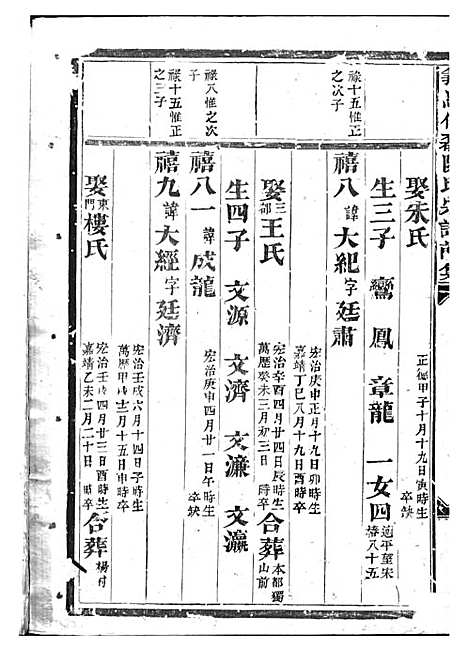 娶宋氏 正德甲子十月十九日寅時生 卒缺
生三子 鸞 鳳 章龍 一女四 適平至宋
禄十五惟正之二子
禧八 諱大紀字廷肅 宏治庚申正月十九日卯時生 嘉靖丁巳八月十九日酉時卒
娶三都王氏 宏治辛酉四月四日辰時生 萬歷癸未三月初三日 時卒 合葬本都獨山前
生四子 文源 文濟 文濂 文瀛
禄八惟之次子
禧八一 諱成龍 宏治庚申四月廿一日午時生 卒缺
禄十五惟正之三子
禧九 諱大經字廷濟 宏治壬戌六月十四日子時生 萬歷甲戌十月十五日申時卒
娶東門樓氏 宏治壬戌四月廿三日酉時生 嘉靖乙未二月二十日 時卒 合葬楊村